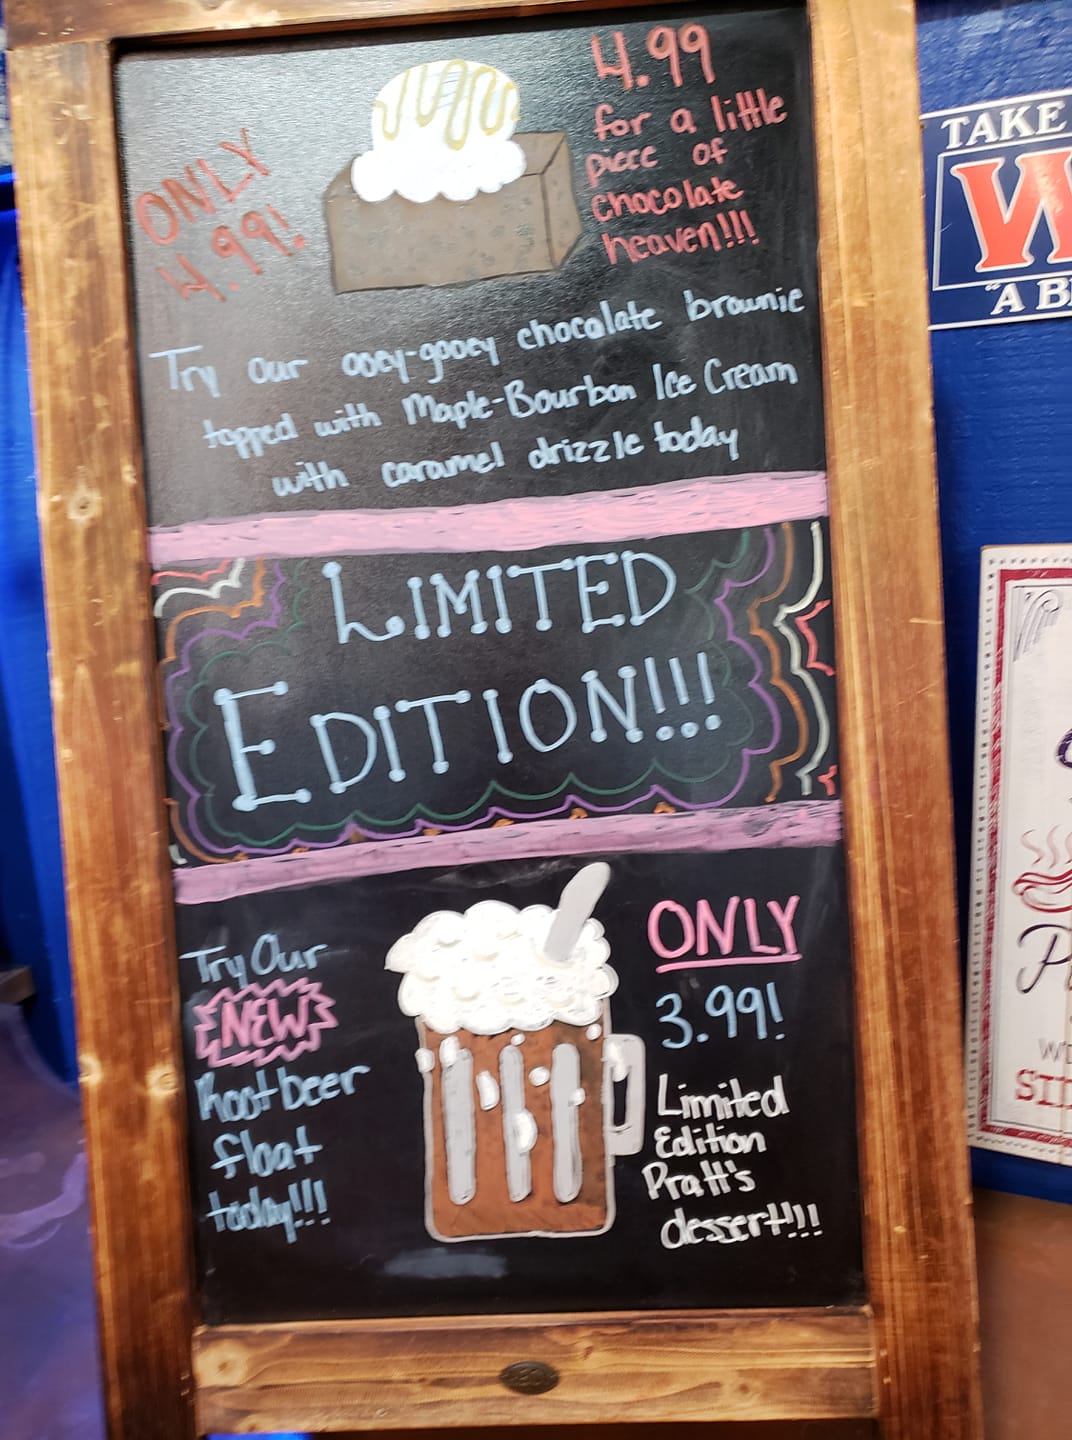 ONLY
4.99!
4.99
for a little
piece of
chocolate
heaven!!!
Try our ooey-gooey chocolate brownie
topped with Maple-Bourbon Ice Cream
with caramel drizzle today
LIMITED
EDITION!!!
Try Our
NEW
Rootbeer
float
today!!!
ONLY
3.99!
Limited
Edition
Pratt's
dessert!!!
TAKE
W
"A B